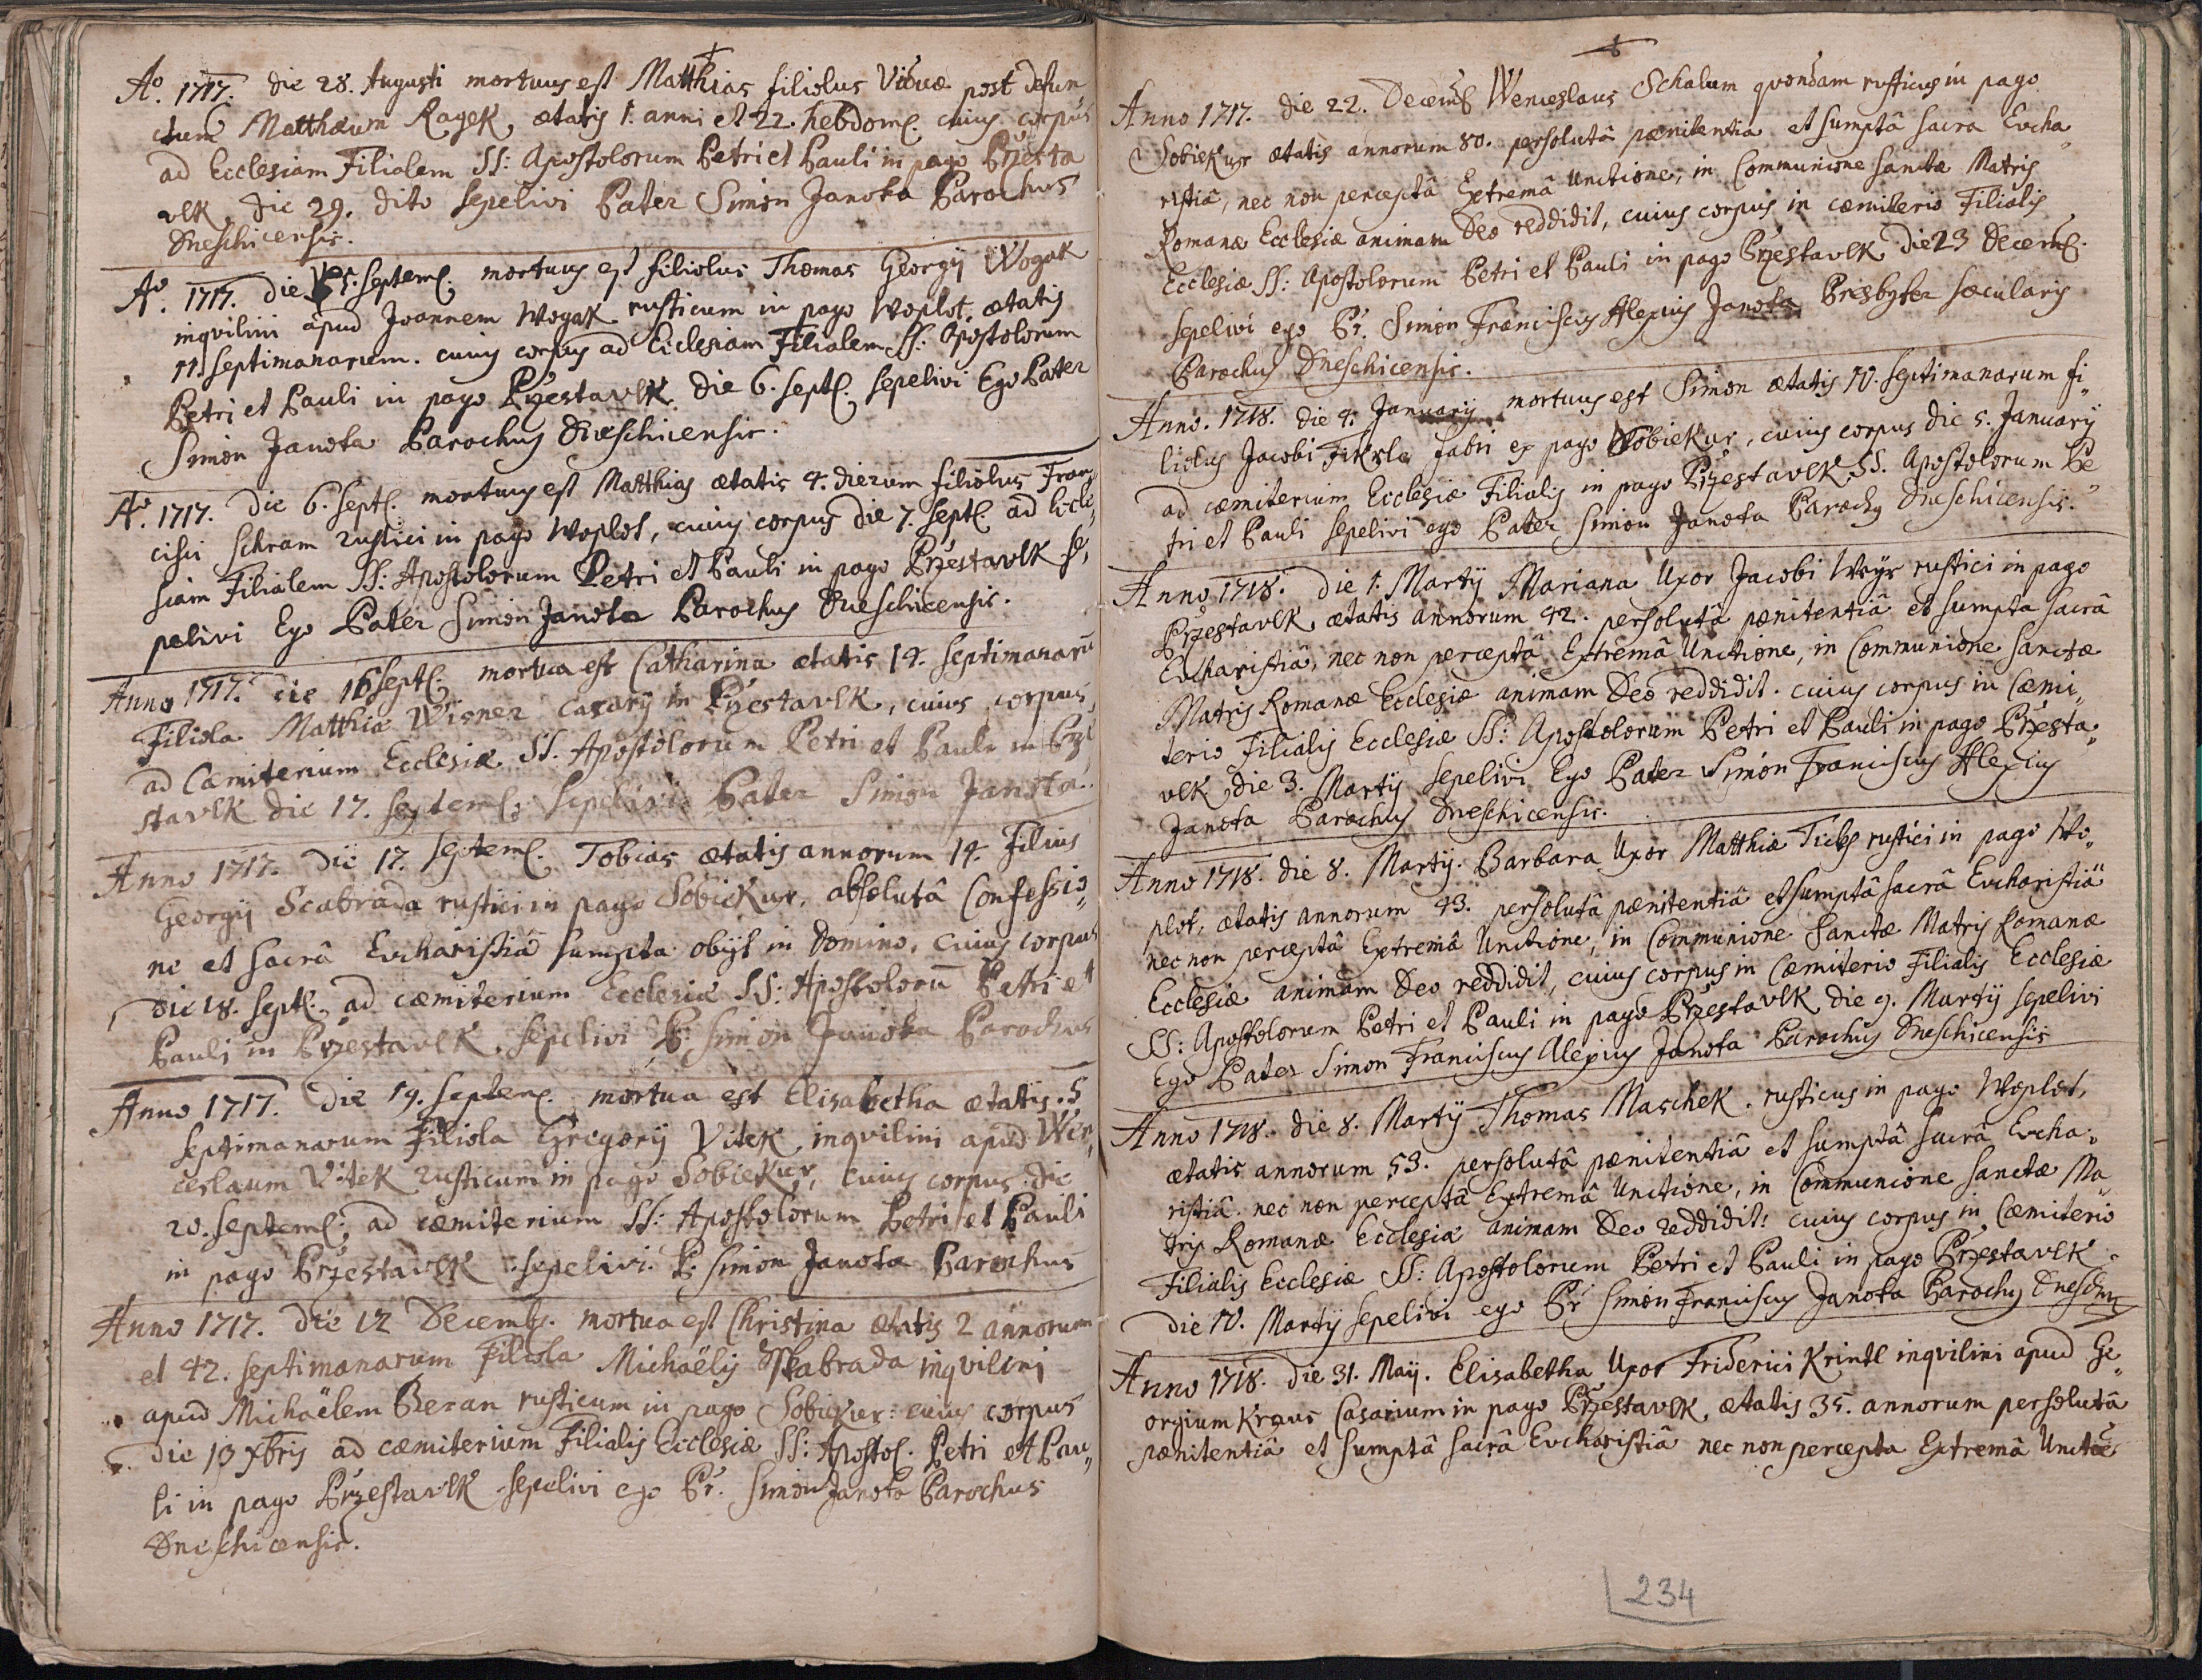 Aº. 1717. die 28. Augusti mortuus est Matthias filiolus Viduæ post defun
ctum Matthæum Ragek, ætatis 1. anni et 22. hebdom. cuius corpus
ad Ecclesiam Filialem SS: Apostolorum Petri et Pauli in pago Przesta
vlk, die 29. dito sepelivi Pater Simon Janota Parochus
Dneschicensis.
Aº. 1717. die 5. Septem. mortuus est filiolus Thomas Georgij Wogak
inqvilini apud Joannem Wogak rusticum in pago Woplot, ætatis
11. septimanarum. cuius corpus ad Ecclesiam Filialem SS: Apostolorum
Petri et Pauli in pago Przestavlk die 6. sept. sepelivi Ego Pater
Simon Janota Parochus Dneschicensis.
Aº. 1717. die 6. Sept. mortuus est Matthias ætatis 4. dierum filiolus Fran„
cisci Schram rustici in pago Woplot, cuius corpus die 7. Sept. ad Eccle„
siam Filialem SS: Apostolorum Petri et Pauli in pago Przestavlk se„
pelivi Ego Pater Simon Janota Parochus Dneschicensis.
Anno 1717. die 16 sept. mortua est Catharina ætatis 14. septimanarū
Filiola Matthiæ Wisner casarij in Przestavlk, cuius corpus
ad Cæmiterium Ecclesiæ SS. Apostolorum Petri et Pauli in Prze
stavlk die 17. septem. sepelivi Pater Simon Janota.
Anno 1717. die 17. septem. Tobias ætatis annorum 14. filius
Georgij Scabrada rustici in pago Sobiekur, absolutâ Confessio„
ne et sacrâ Eucharistiâ sumpta obijt in Domino, cuius corpus
die 18. sept. ad cæmiterium Ecclesiæ SS: Apostolorū Petri et
Pauli in Przestavlk, sepelivi P: Simon Janota Parochus
Anno 1717. die 19. septem. mortua est Elisabetha ætatis. 5
septimanarum Filiola Gregorij Vitek inqvilini apud Wen„
ceslaum Vitek rusticum in pago Sobiekur, cuius corpus die
20. septem. ad cæmiterium SS: Apostolorum Petri et Pauli
in pago Przestavlk sepelivi. P. Simon Janota Parochus
Anno 1717. die 12 Decemb. mortua est Christina ætatis 2 annorum
et 42. septimanarum Filiola Michaëlis Skabrada inqvilini
apud Michaëlem Beran rusticum in pago Sobiekur: cuius corpus
die 13 Xbris ad cæmiterium Filialis Ecclesiæ SS: Apostol. Petri et Pau„
li in pago Przestavlk sepelivi ego Pr. Simon Janota Parochus
Dneschicensis.
Anno 1717. die 22. Decemb Wenceslaus Schalum qvondam rusticus in pago
Sobiekur ætatis annorum 80. persolutâ pænitentia et sumptâ sacra Eucha„
ristiâ, nec non perceptâ Extremâ Unctione, in Communione sanctæ Matris
Romanæ Ecclesiæ animam Deo reddidit, cuius corpus in cæmiterio Filialis
Ecclesiæ SS: Apostolorum Petri et Pauli in pago Przestavlk die 23 Decem.
sepelivi ego Pr. Simon Franciscus Alexius Janota Presbyter sæcularis
Parochus Dneschicensis.
Anno. 1718. die 4. Januarij mortuus est Simon ætatis 10. septimanarum fi„
liolus Jacobi Fikrle fabri ex pago Sobiekur, cuius corpus die 5. Januarij
ad cæmiterium Ecclesiæ Filialis in pago Przestavlk SS. Apostolorum Pe„
tri et Pauli sepelivi ego Pater Simon Janota Parochus Dneschicensis.
Anno 1718. die 1. Martij Mariana Uxor Jacobi Weyr rustici in pago
Przestavlk, ætatis annorum 42. persolutâ pænitentiâ et sumpta sacrâ
Eucharistiâ, nec non perceptâ Extremâ Unctione, in Communione sanctæ
Matris Romanæ Ecclesiæ animam Deo reddidit. cuius corpus in Cæmi„
terio Filialis Ecclesiæ SS: Apostolorum Petri et Pauli in pago Przesta„
vlk die 3. Martij sepelivi Ego Pater Simon Franciscus Alexius
Janota Parochus Dneschicensis.
Anno 1718. die 8. Martij. Barbara Uxor Matthiæ rustici in pago Wo„
plot, ætatis annorum 43. persolutâ pænitentiâ et sumptâ sacrâ Eucharistiâ
nec non perceptâ Extremâ Unctione, in Communione Sanctæ Matris Romanæ
Ecclesiæ animam Deo reddidit, cuius corpus in Cæmiterio Filialis Ecclesiæ
SS: Apostolorum Petri et Pauli in pago Przestavlk die 9. Martij sepelivi
Ego Pater Simon Franciscus Alexius Janota Parochus Dneschicensis
Anno 1718. die 8. Martij Thomas Maschek. rusticus in pago Woplot,
ætatis annorum 53. persolutâ pænitentiâ et sumptâ sacrâ Eucha„
ristiâ. nec non perceptâ Extremâ Unctione, in Communione sanctæ Ma„
tris Romanæ Ecclesiæ animam Deo reddidit: cuius corpus in Cæmiterio
Filialis Ecclesiæ SS: Apostolorum Petri et Pauli in pago Przestavlk.
die 10. Martij sepelivi ego Pr Simon Franciscus Janota Parochus Dnesch
Anno 1718. die 31. Maij. Elisabetha Uxor Friderici Krintl inqvilini apud Ge„
orgium Kraus Casarium in pago Przestavlk, ætatis 35. annorum persolutâ
pænitentiâ et sumptâ sacrâ Eucharistiâ nec non percepta Extremâ Unctōe
234